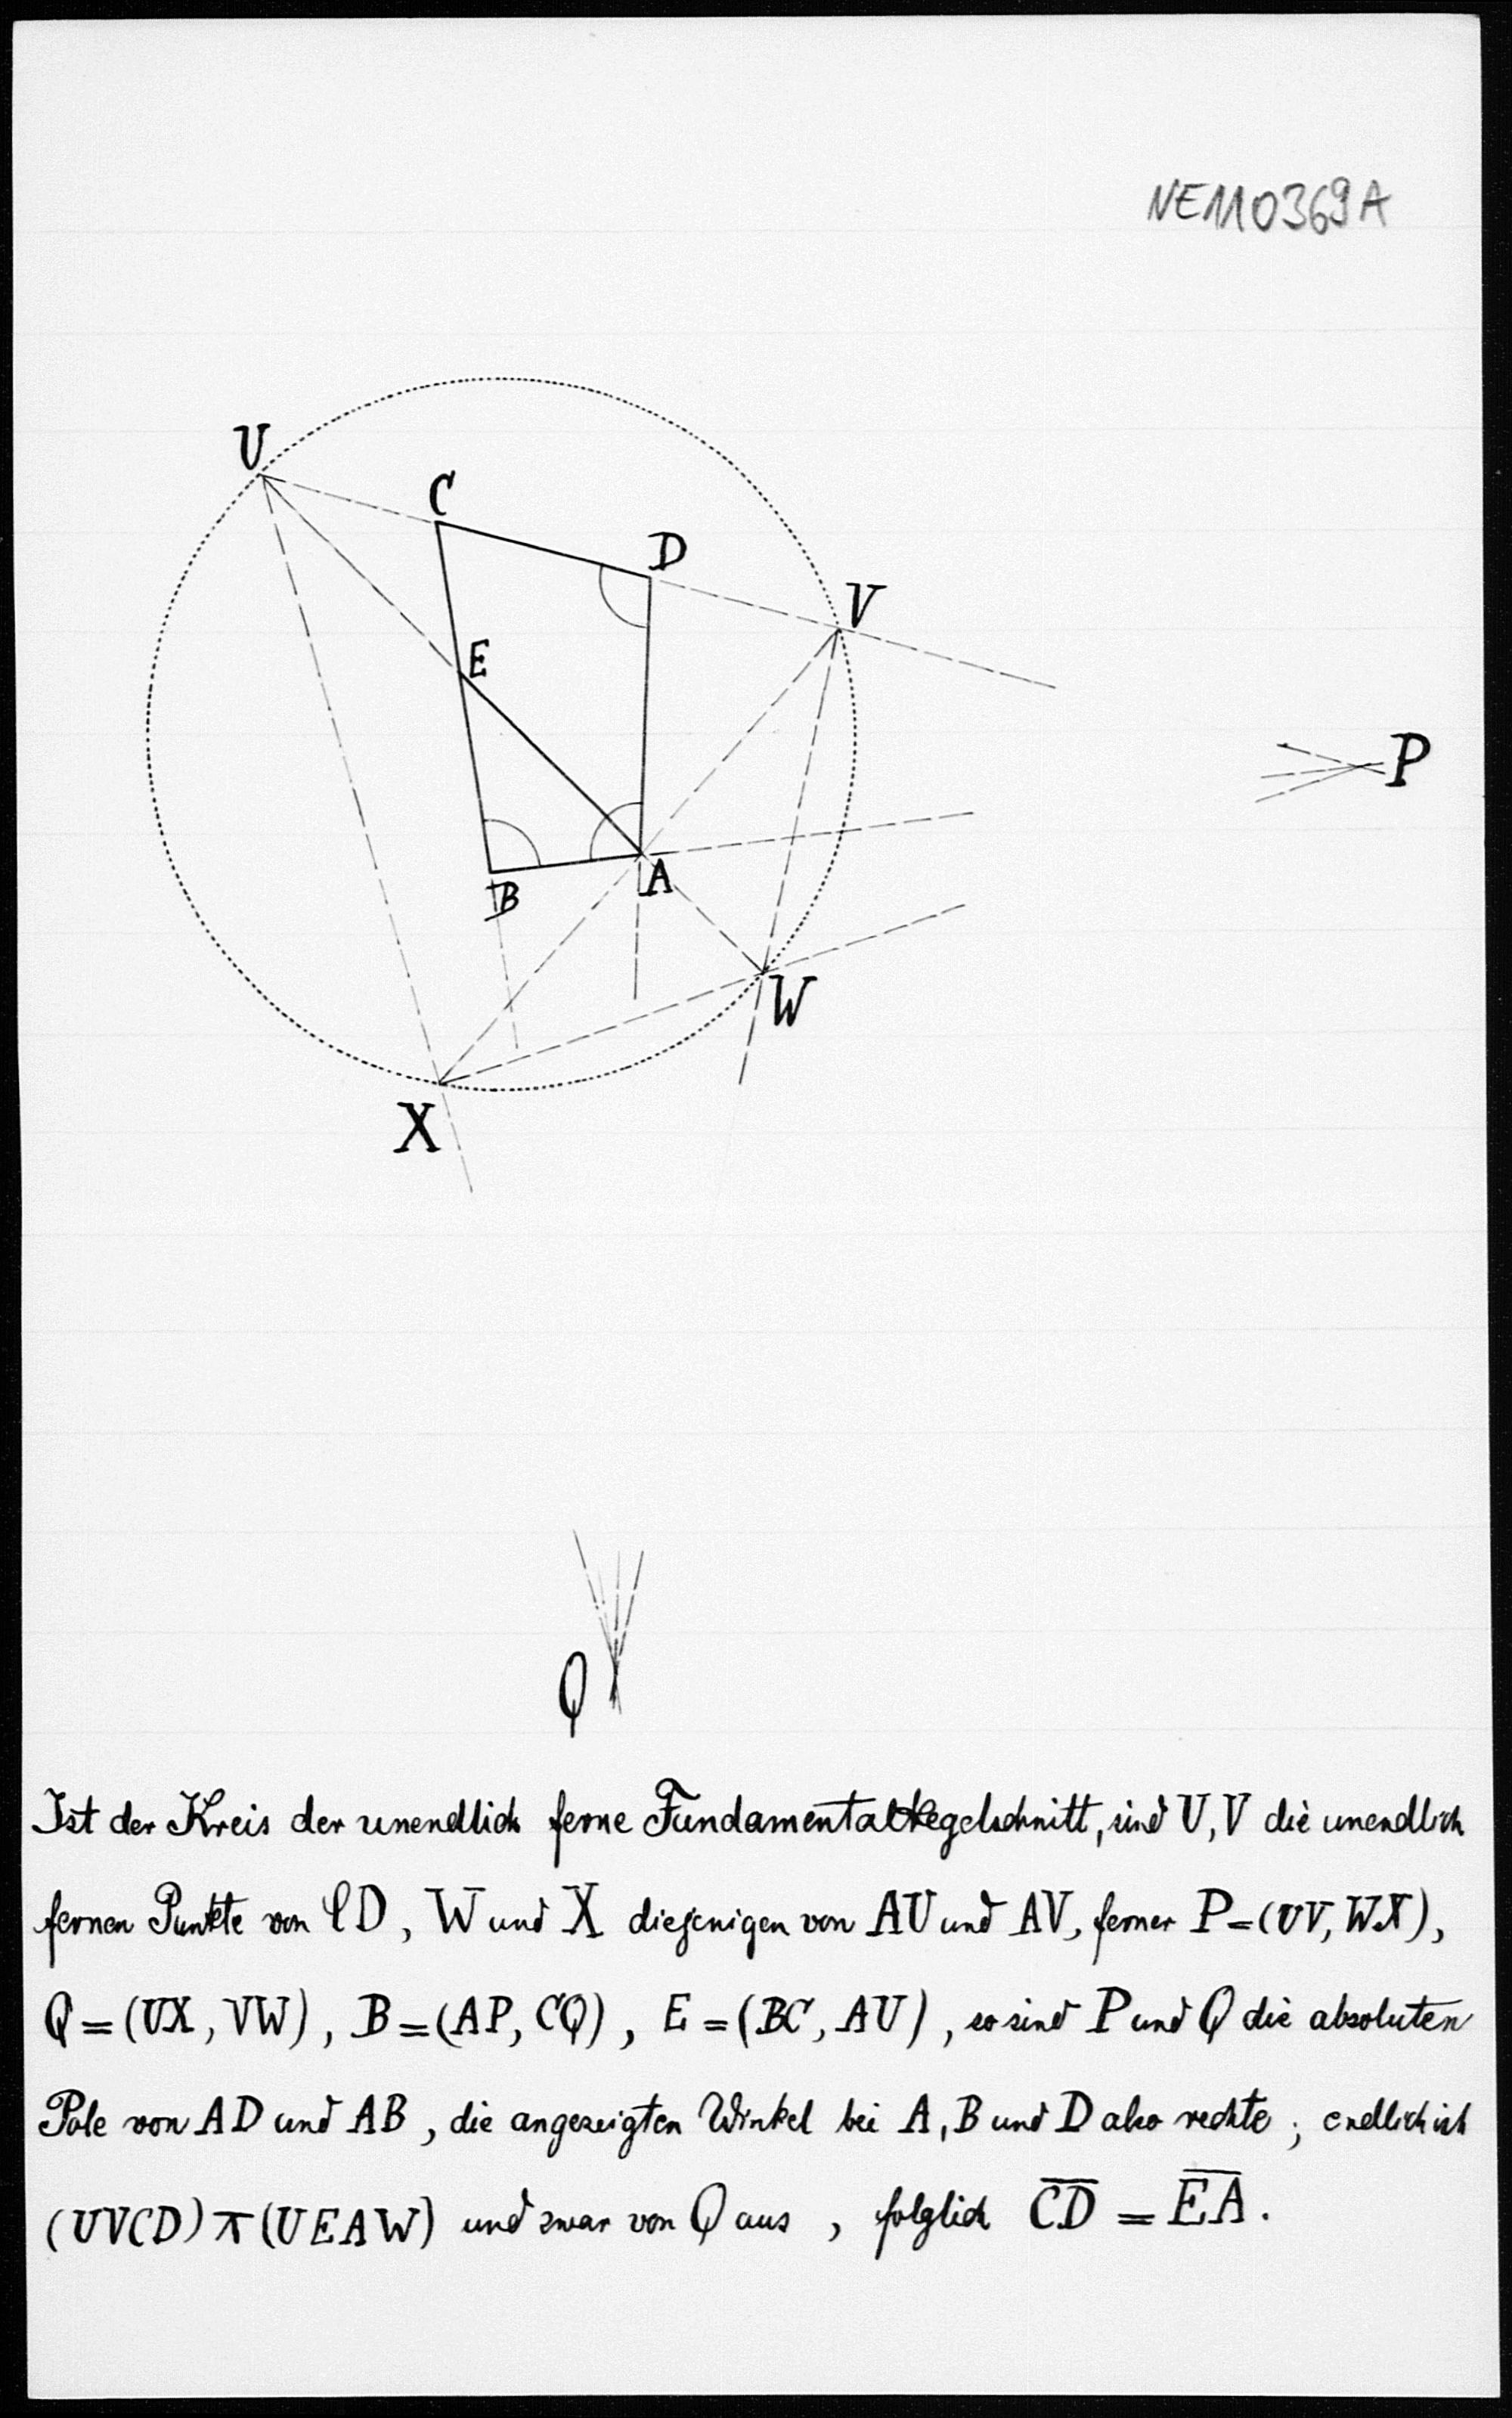 NE110369A
U
C
D
V
E
P
B
A
W
X
Q
Ist der Kreis der unendlich ferne Fundamentalkegelschnitt, sind U, V die unendlich
fernen Punkte von CD, W und X diejenigen von AU und AV, ferner P=(UV, WX),
Q=(UX, VW), B=(AP, CQ), E=(BC, AU), so sind P und Q die absoluten
Pole von AD und AB, die angezeigten Winkel bei A, B und D also rechte; endlich ist
(UVCD)⊼(UEAW) und zwar von Q aus, folglich C̅D̅ = E̅A̅.